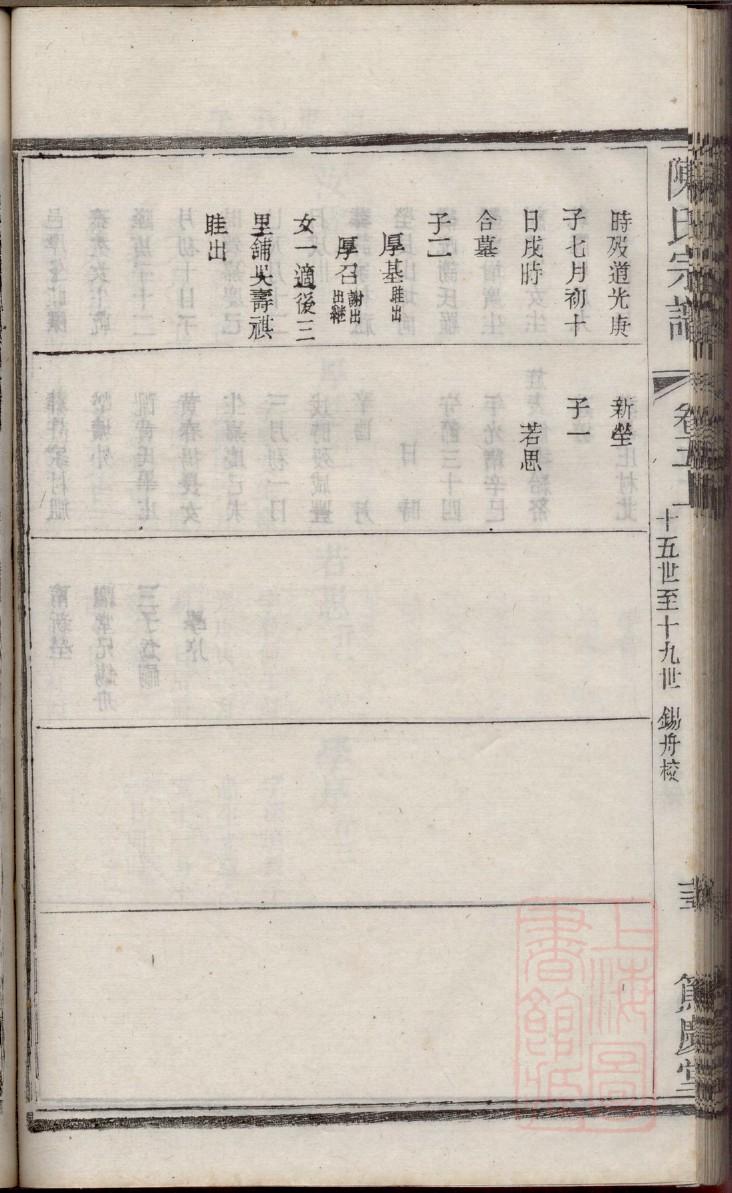 陳氏宗譜
卷五
十五世至十九世 錫舟校
篤慶堂
時歿道光庚
子七月初十
日戌時
合墓
子二
厚基 眭出
厚召 謝出 出繼
女一適後三
里鋪吳壽祺
眭出
新塋
子一
若思
上海圖書館藏